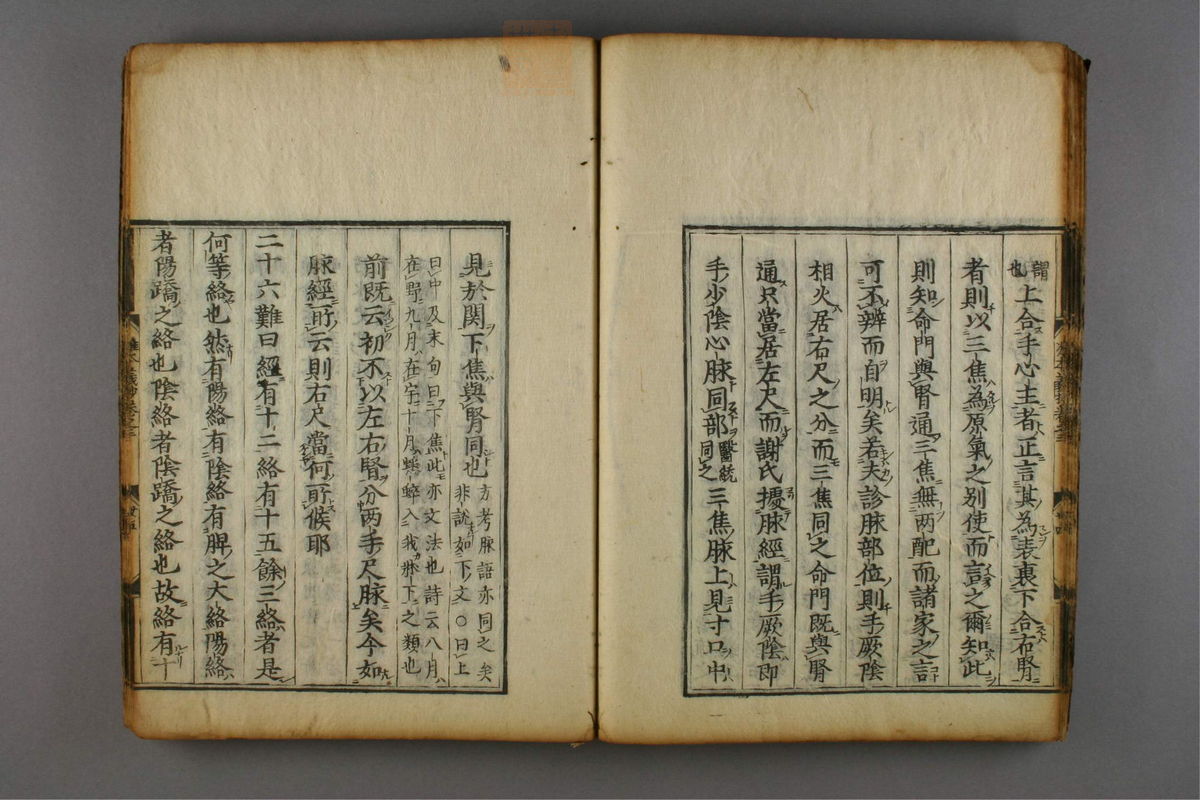 謂也上合手心主者正言其為表裏下合右腎
者則以三焦為原氣之別使而言之爾知此
則知命門與腎通三焦無兩配而諸家之言
可不辨而自明矣若夫診脉部位則手厥陰
相火居右尺之分而三焦同之命門既與腎
通只當居左尺而謝氏據脉經謂手厥陰即
手少陰心脉同部醫統同之三焦脉上見寸口中
見於関下焦與腎同也方考脉語亦同之矣非說如下文○曰上
曰中及末句曰下焦此亦文法也詩云八月
在野九月在宇十月蟋蟀入我牀下之類也
前既云初不以左右腎分兩手尺脉矣今如
脉經所云則右尺當何所候耶
二十六難曰經有十二絡有十五餘三絡者是
何等絡也然有陽絡有陰絡有脾之大絡陽絡
者陽蹻之絡也陰絡者陰蹻之絡也故絡有十